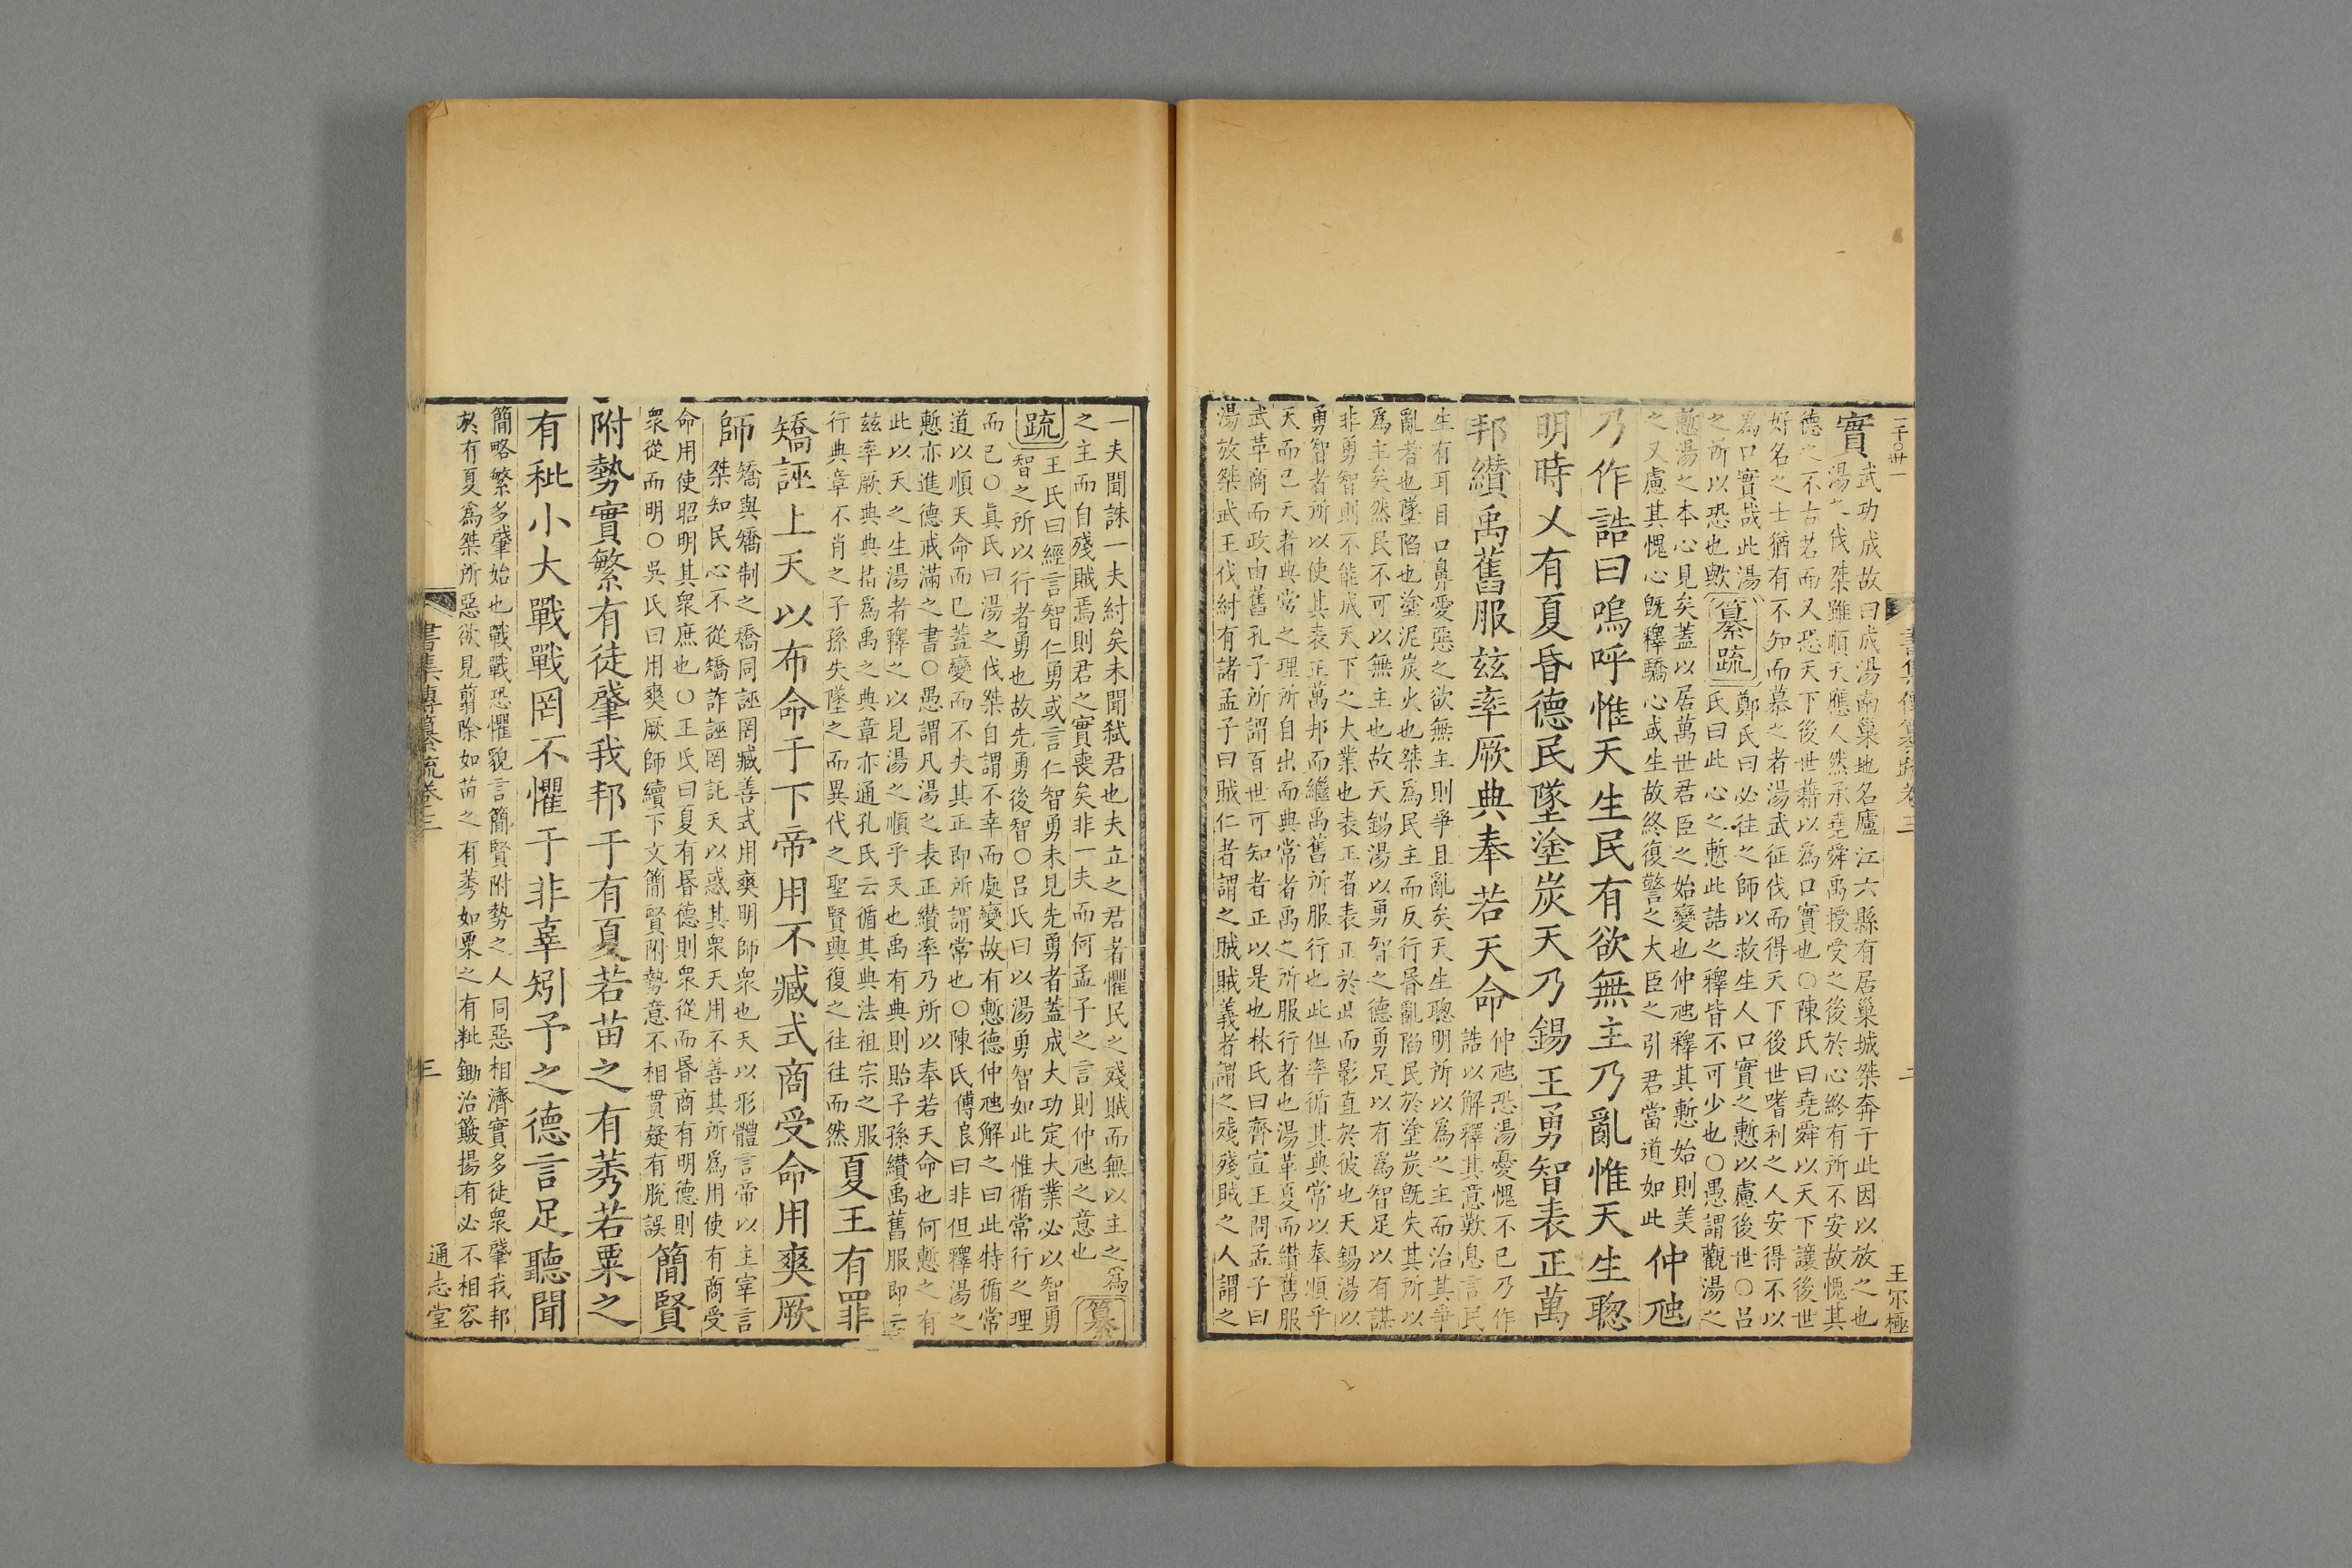 書集傳纂疏卷三
二
王尔極
實
武功成故曰成湯南巢地名廬江六縣有居巢城桀奔于此因以放之也
湯之伐桀雖順天應人然承堯舜禹授受之後於心終有所不安故愧其
德之不古若而又恐天下後世藉以為口實也○陳氏曰堯舜以天下讓後世
好名之士猶有不知而慕之者湯武征伐而得天下後世嗜利之人安得不以
為口實哉此湯
之所以恐也歟
纂疏
鄭氏曰必往之師以救生人口實之慙以慮後世○呂
氏曰此心之慙此誥之釋皆不可少也○愚謂觀湯之
慙湯之本心見矣蓋以居萬世君臣之始變也仲虺釋其慙始則美
之又慮其愧心旣釋驕心或生故終復警之大臣之引君當道如此
仲虺
乃作誥曰嗚呼惟天生民有欲無主乃亂惟天生聦
明時乂有夏昏德民墜塗炭天乃錫王勇智表正萬
邦纘禹舊服兹率厥典奉若天命
仲虺恐湯憂愧不已乃作
誥以解釋其意歎息言民
生有耳目口鼻愛惡之欲無主則爭且亂矣天生聦明所以為之主而治其爭
亂者也墜陷也塗泥炭火也桀為民主而反行昏亂陷民於塗炭旣失其所以
為主矣然民不可以無主也故天錫湯以勇智之德勇足以有為智足以有謀
非勇智則不能成天下之大業也表正者表正於此而影直於彼也天錫湯以
勇智者所以使其表正萬邦而繼禹舊所服行也此但率循其典常以奉順乎
天而已天者典常之理所自出而典常者禹之所服行者也湯革夏而纘舊服
武革商而政由舊孔子所謂百世可知者正以是也林氏曰齊宣王問孟子曰
湯放桀武王伐紂有諸孟子曰賊仁者謂之賊賊義者謂之殘殘賊之人謂之
一夫聞誅一夫紂矣未聞弑君也夫立之君者懼民之殘賊而無以主之為
之主而自殘賊焉則君之實喪矣非一夫而何孟子之言則仲虺之意也
纂
疏
王氏曰經言智仁勇或言仁智勇未見先勇者蓋成大功定大業必以智勇
智之所以行者勇也故先勇後智○呂氏曰以湯勇智如此惟循常行之理
而已○眞氏曰湯之伐桀自謂不幸而處變故有慙德仲虺解之曰此特循常
道以順天命而已蓋變而不失其正即所謂常也○陳氏傅良曰非但釋湯之
慙亦進德戒滿之書○愚謂凡湯之表正纘率乃所以奉若天命也何慙之有
此以天之生湯者釋之以見湯之順乎天也禹有典則貽子孫纘禹舊服即云
兹率厥典典指為禹之典章亦通孔氏云循其典法祖宗之服
行典章不肖之子孫失墜之而異代之聖賢興復之往往而然
夏王有罪
矯誣上天以布命于下帝用不臧式商受命用爽厥
師
矯與矯制之矯同誣罔臧善式用爽明師衆也天以形體言帝以主宰言
桀知民心不從矯詐誣罔託天以惑其衆天用不善其所為用使有商受
命用使昭明其衆庶也○王氏曰夏有昏德則衆從而昏商有明德則
衆從而明○吳氏曰用爽厥師續下文簡賢附勢意不相貫疑有脫誤
簡賢
附勢實繁有徒肇我邦于有夏若苗之有莠若粟之
有秕小大戰戰罔不懼于非辜矧予之德言足聽聞
簡略繁多肇始也戰戰恐懼貌言簡賢附勢之人同惡相濟實多徒衆肇我邦
於有夏為桀所惡欲見翦除如苗之有莠如粟之有秕鋤治簸揚有必不相容
書集傳纂疏卷三
三
通志堂